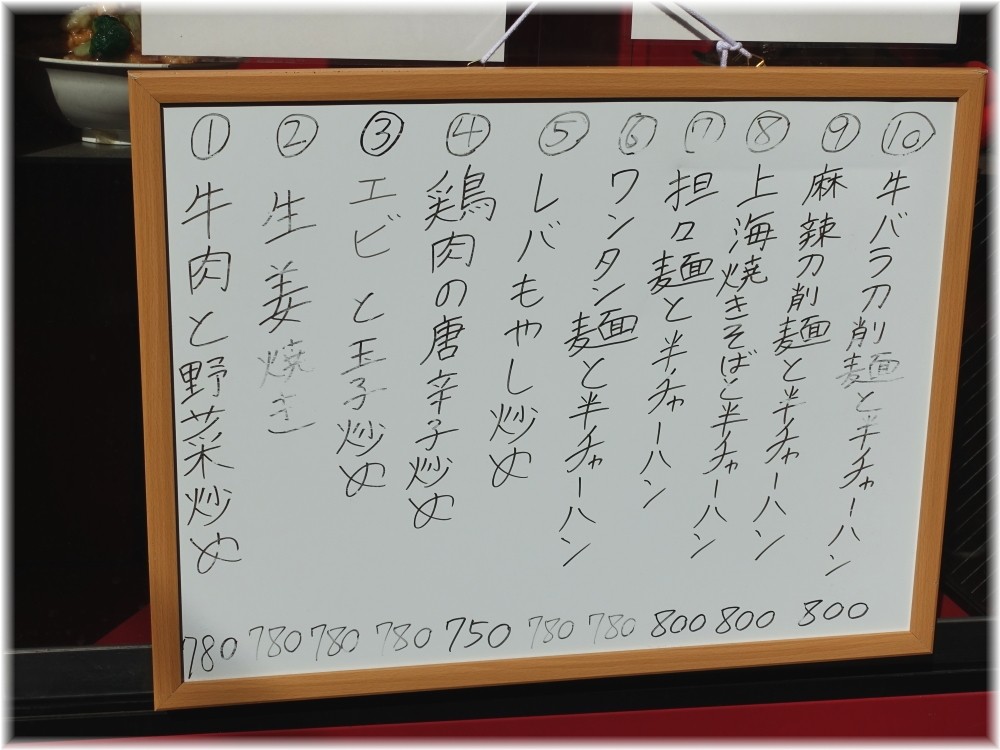 ① 牛肉と野菜炒め 780
② 生姜焼き 780
③ エビと玉子炒め 780
④ 鶏肉の唐辛子炒め 780
⑤ レバもやし炒め 750
⑥ ワンタン麺と半チャーハン 780
⑦ 担々麺と半チャーハン 780
⑧ 上海焼きそばと半チャーハン 800
⑨ 麻辣刀削麺と半チャーハン 800
⑩ 牛バラ刀削麺と半チャーハン 800